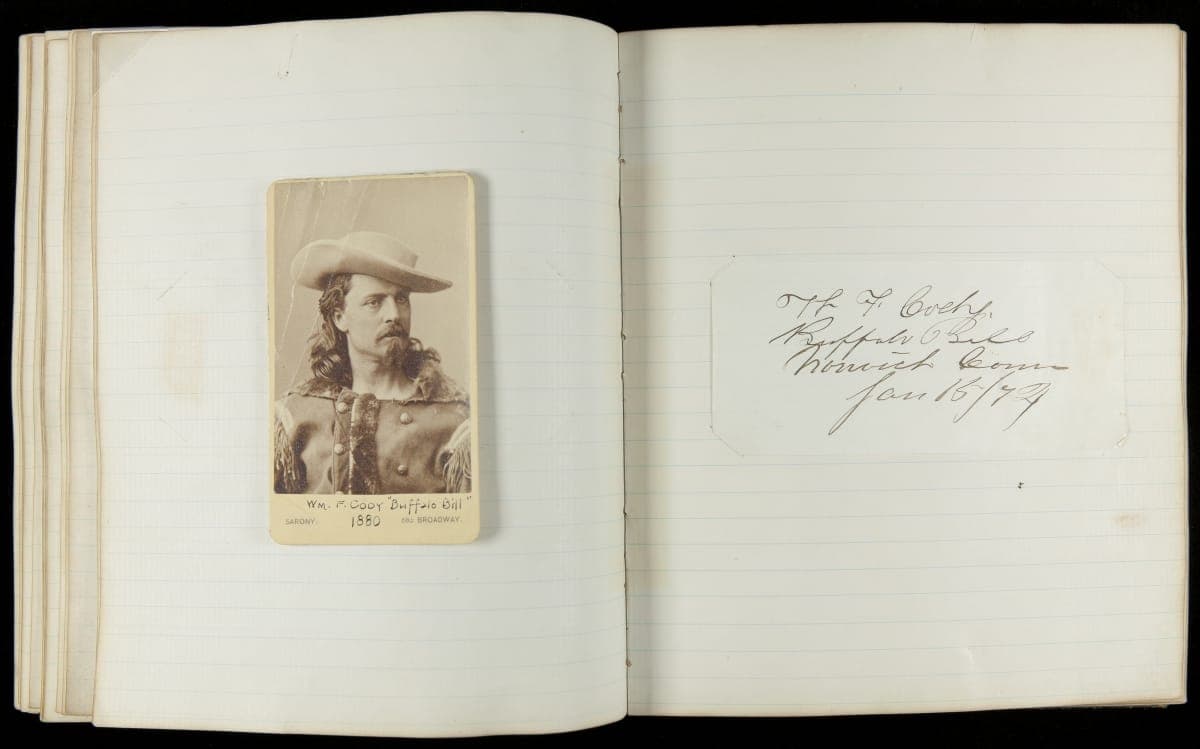 WM. F. CODY "Buffalo Bill"
SARONY. 1880 680 BROADWAY.
Buffalo Bill
Norwich Conn
Jan 15/